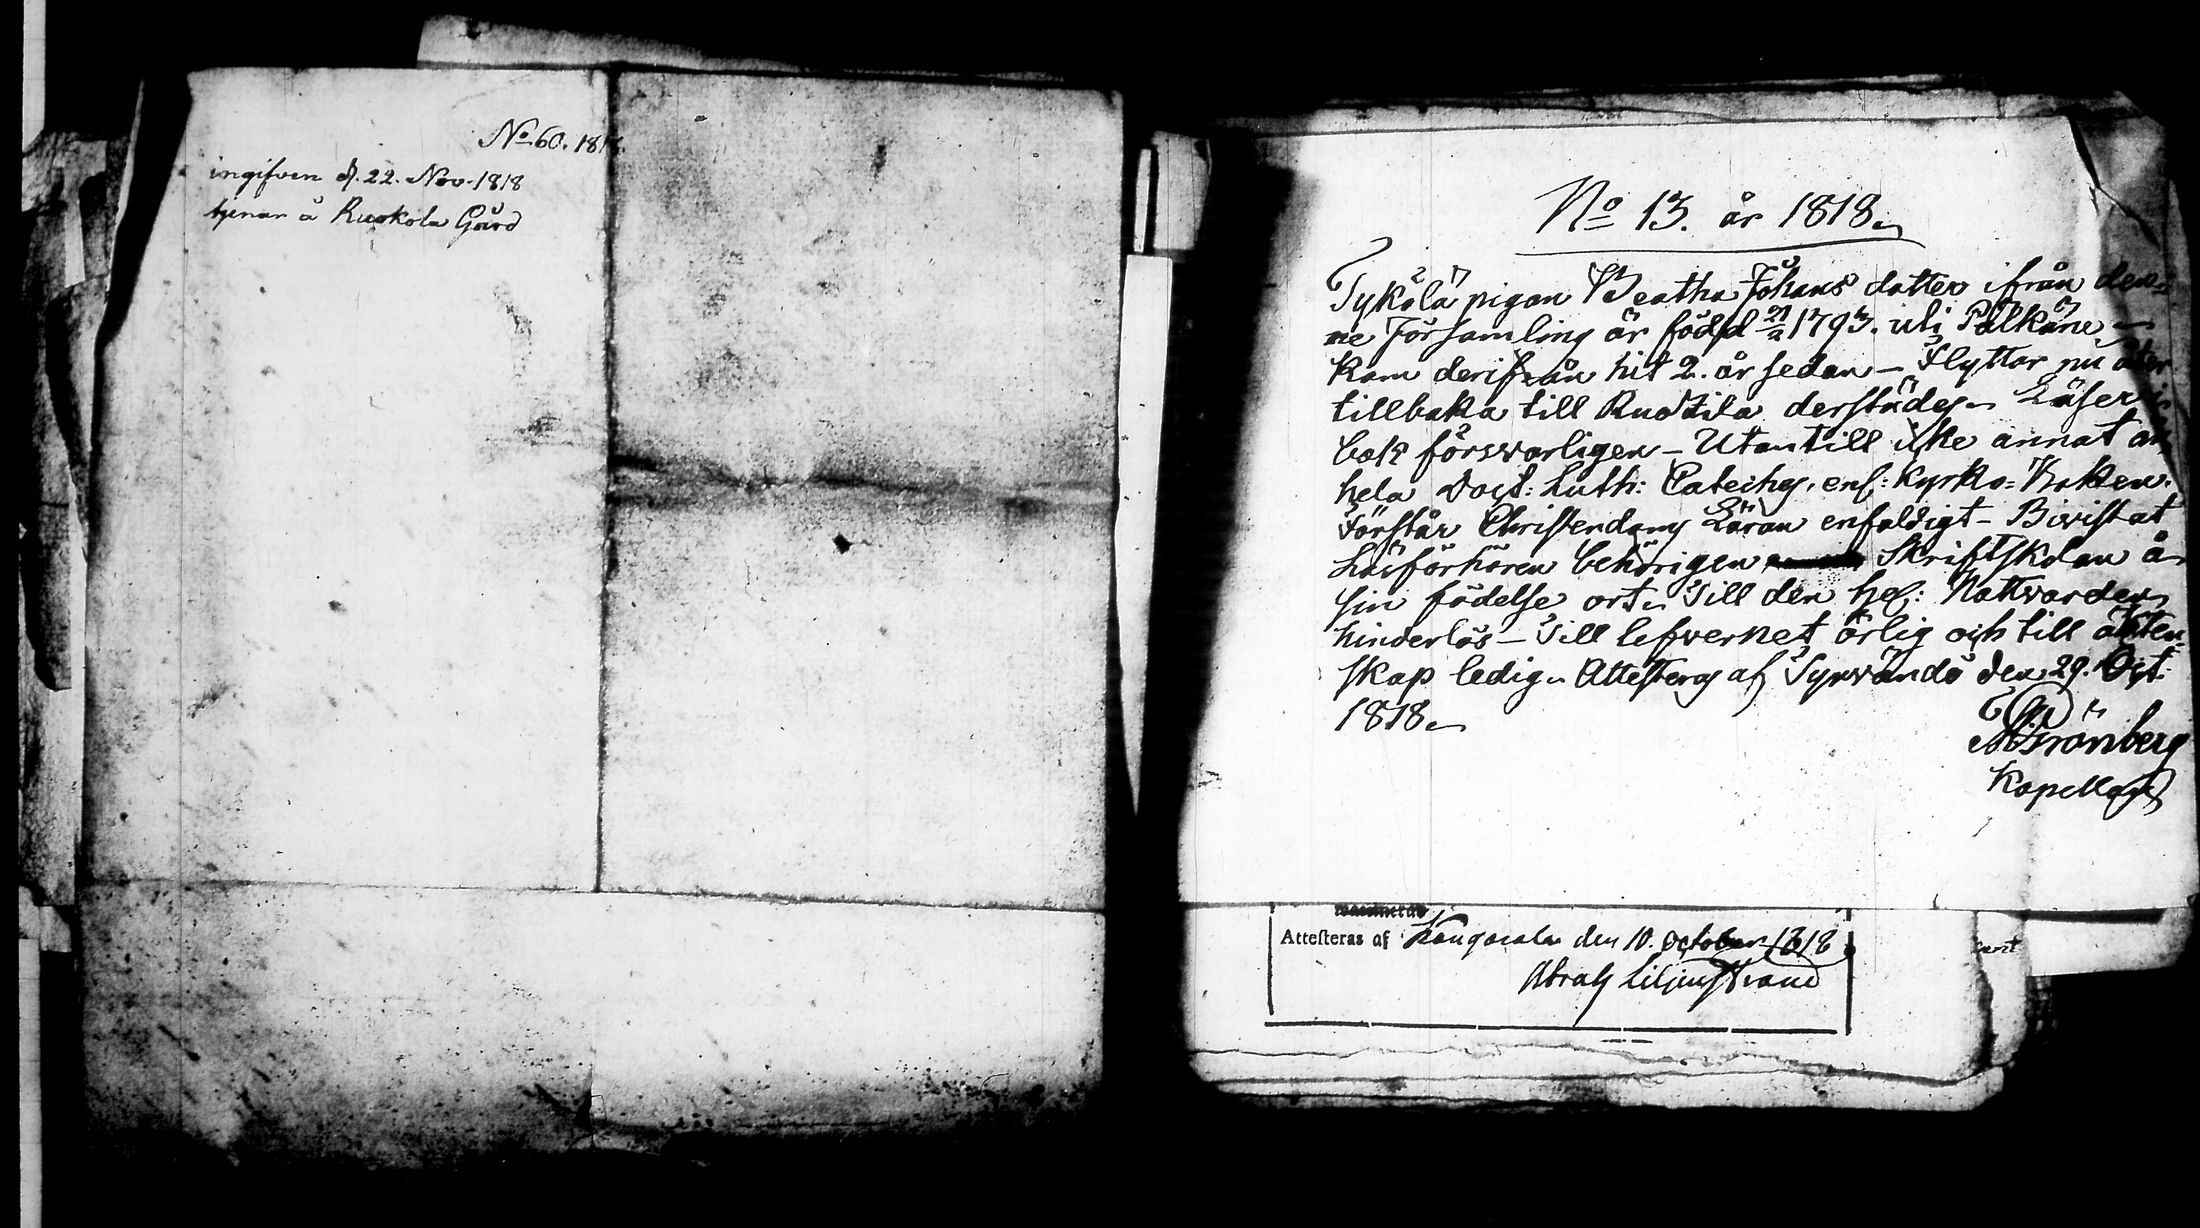 No 60. 1818.
ingifven d. 22. Nov. 1818
tjenar å Ruokola Gård
No 13. år 1818.
Tykölä pigan Beatha Johans dotter ifrån den-
ne Församling är född 21/2 1793. uti Pälkäne
kom derifrån hit 2. år sedan - Flyttar nu åter
tillbaka till derstädes - Läser i
bok försvarligen - Utantill icke annat än
hela Doct: Luth: Cateches. enl: Kyrko-Boken.
Förstår Christendoms Läran enfaldigt - Bivistat
Läsförhören behörigen Skriftskolan å
sin födelse ort. Till den hel: Nattvarden
hinderlös - Till lefvernet ärlig och till äkten-
skap ledig. Attesteras af Syrvändö den 29. Oct:
1818.
Grönberg
Kapellan
Attesteras af Kangasala den 10. October 1818
Abrah Liljenstrand